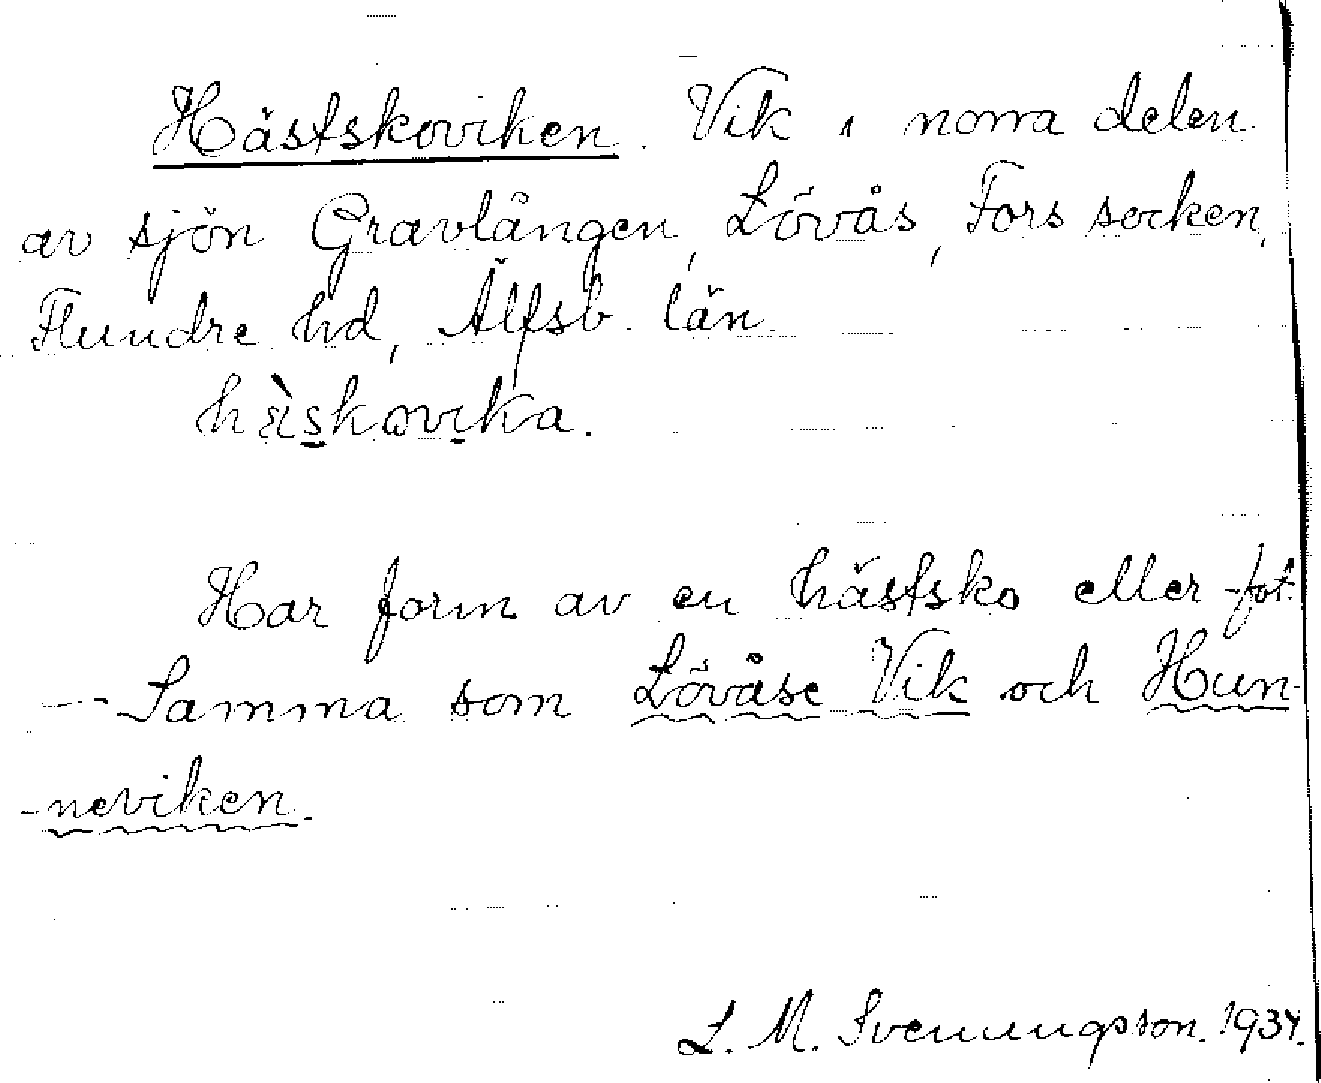 Hästskoviken. Vik i norra delen
av sjön Gravlången, Lövås, Fors socken,
Flundre hd, Älfsb. län.
hä̀skovika.
Har form av en hästsko eller -fot.
- Samma som Lövåse Vik och Hun-
-neviken.
L. M. Svenungsson. 1934.